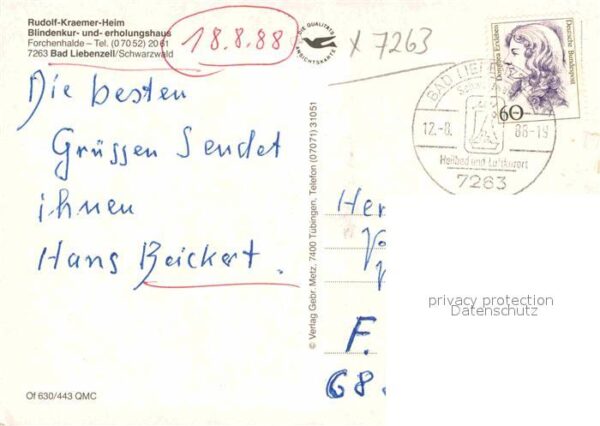 Rudolf-Kraemer-Heim
Blindenkur- und -erholungshaus
Forchenhalde – Tel. (07052) 2061
7263 Bad Liebenzell/Schwarzwald
18.8.88
DIE QUALITÄTS
ANSICHTSKARTE
x 7263
Dorothea Erxleben
Deutsche Bundespost
60
BAD LIEBENZELL
12.-8. 88-19
Heilbad und Luftkurort
7263
Die besten
Grüssen Sendet
ihnen
Hans Beickert.
© Verlag Gebr. Metz, 7400 Tübingen, Telefon (07071) 31051
Her
F.
68.
privacy protection
Datenschutz
Of 630/443 QMC